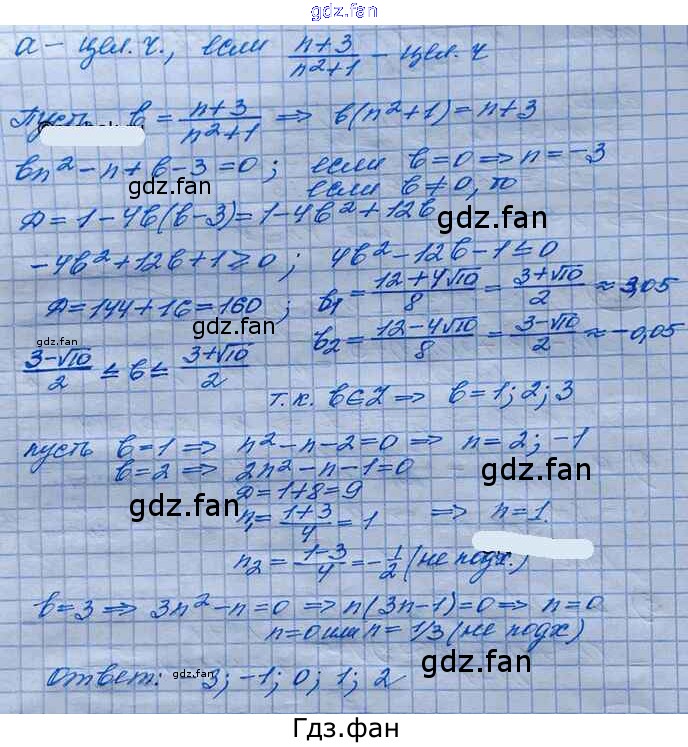 gdz.fan
а – цел. ч., если (n+3)/(n²+1) – цел. ч
Пусть в = (n+3)/(n²+1) ⇒ в(n²+1) = n+3
вn² – n + в – 3 = 0 ; если в = 0 ⇒ n = –3
gdz.fan
если в ≠ 0, то
gdz.fan
Д = 1 – 4в(в–3) = 1 – 4в² + 12в
gdz.fan
–4в² + 12в + 1 ≥ 0 ; 4в² – 12в – 1 ≤ 0
Д = 144 + 16 = 160 ; в₁ = (12+4√10)/8 = (3+√10)/2 ≈ 3,05
gdz.fan
в₂ = (12–4√10)/8 = (3–√10)/2 ≈ –0,05
(3–√10)/2 ≤ в ≤ (3+√10)/2
т.к. в∈Z ⇒ в = 1; 2; 3
пусть в = 1 ⇒ n² – n – 2 = 0 ⇒ n = 2; –1
в = 2 ⇒ 2n² – n – 1 = 0
gdz.fan
Д = 1 + 8 = 9
gdz.fan
n₁ = (1+3)/4 = 1 ⇒ n = 1.
n₂ = (1–3)/4 = –1/2 (не подх.)
gdz.fan
в = 3 ⇒ 3n² – n = 0 ⇒ n(3n–1) = 0 ⇒ n = 0
n = 0 или n = 1/3 (не подх)
gdz.fan
Ответ: –3; –1; 0; 1; 2
gdz.fan
Гдз.фан